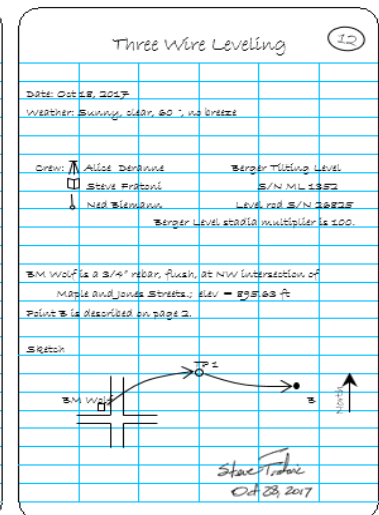 Three Wire Leveling 12
Date: Oct 18, 2017
Weather: Sunny, clear, 60 °, no breeze
Crew: Alice Deranne Berger Tilting Level
Steve Fratoni S/N ML 1352
Ned Biemann Level rod S/N 26825
Berger Level stadia multiplier is 100.
BM Wolf is a 3/4" rebar, flush, at NW intersection of
Maple and Jones Streets.; elev = 895.63 ft
Point B is described on page 2.
Sketch
TP1
BM Wolf B North
Steve Fratoni
Oct 28, 2017